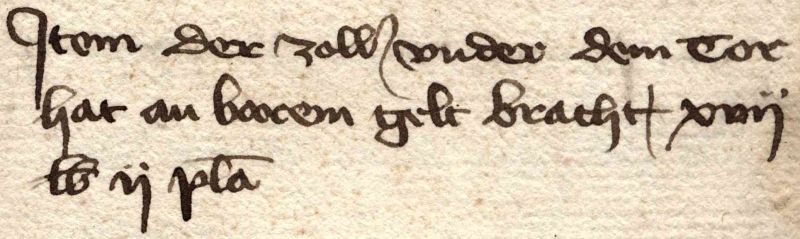 Item der zoll vnder dem Tor
hat an boorem gelt bracht xvij
lb ij pla